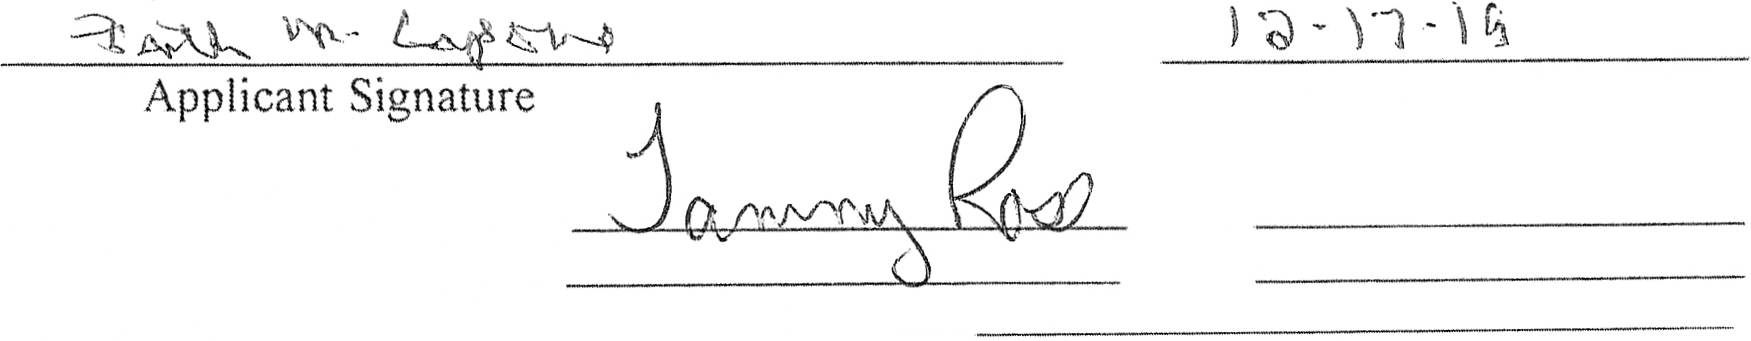 Faith M. 12-17-19
Applicant Signature
Tammy Ross